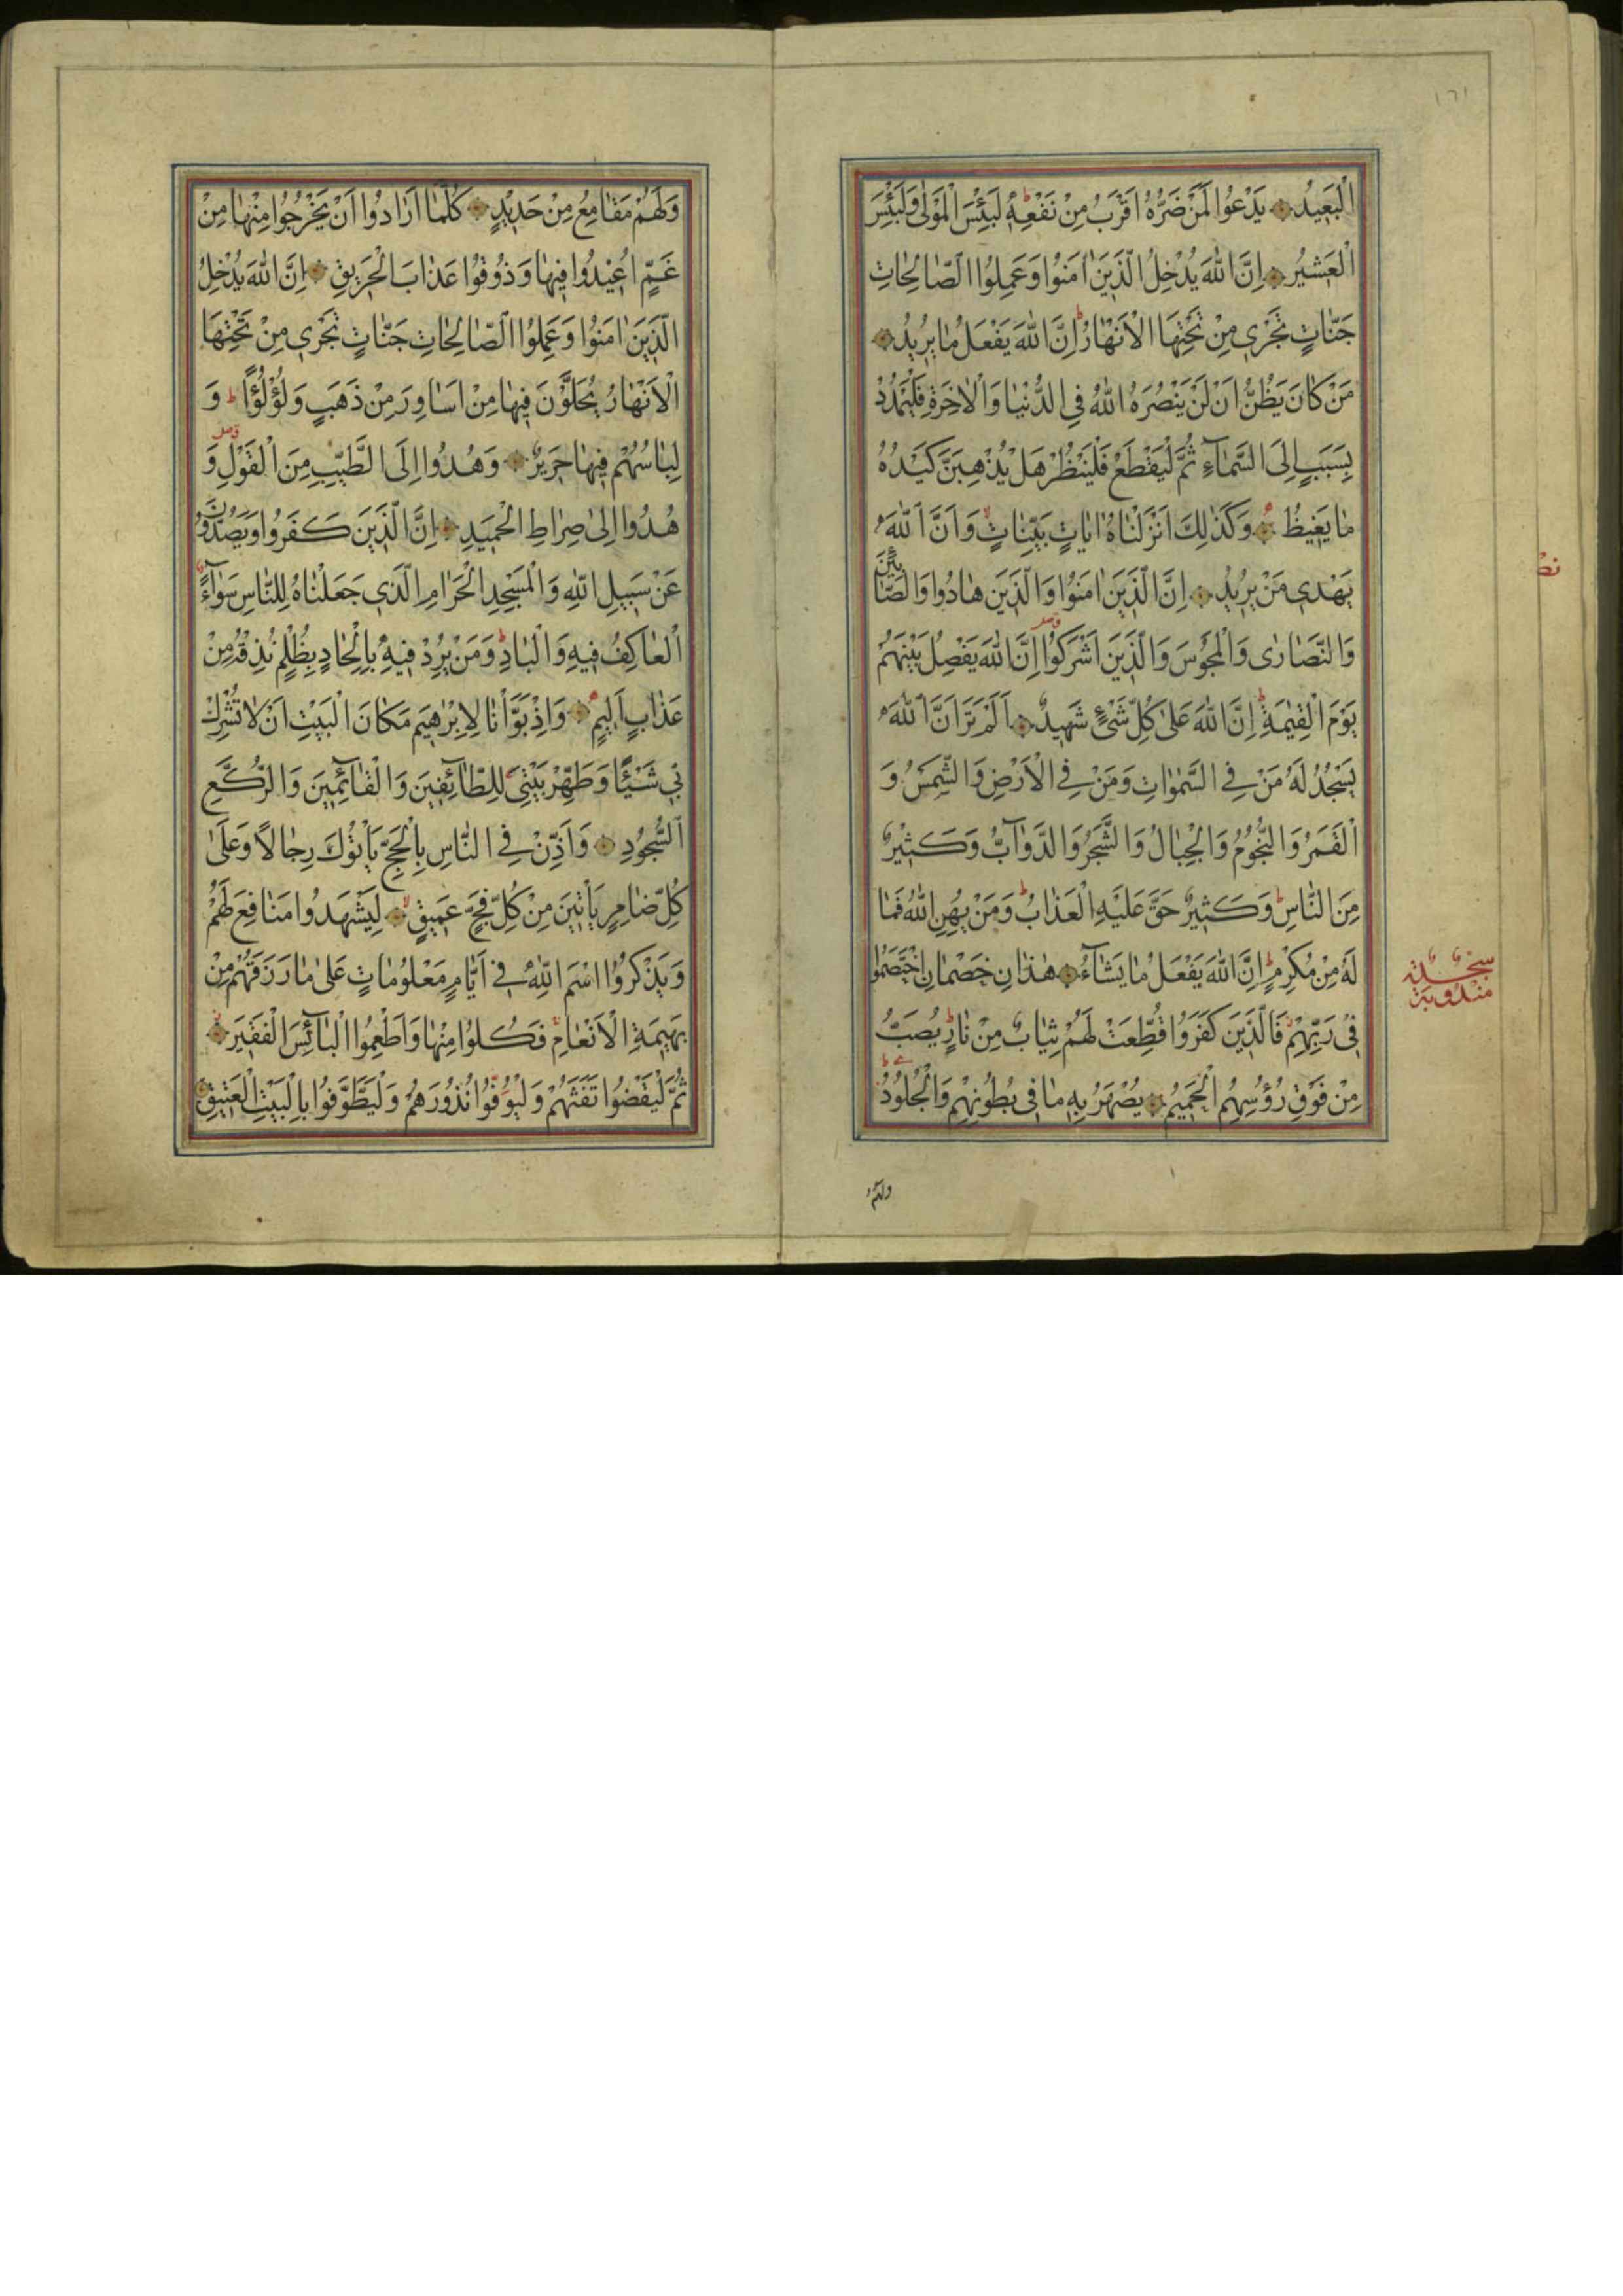 ١٦١
الْبَعِيدُ يَدْعُوا لَمَنْ ضَرُّهُ اَقْرَبُ مِنْ نَفْعِهِ لَبِئْسَ الْمَوْلٰى وَلَبِئْسَ
الْعَشِيرُ اِنَّ اللّٰهَ يُدْخِلُ الَّذِينَ اٰمَنُوا وَعَمِلُوا الصَّالِحَاتِ
جَنَّاتٍ تَجْرِي مِنْ تَحْتِهَا الْاَنْهَارُ ط اِنَّ اللّٰهَ يَفْعَلُ مَا يُرِيدُ
مَنْ كَانَ يَظُنُّ اَنْ لَنْ يَنْصُرَهُ اللّٰهُ فِي الدُّنْيَا وَالْاٰخِرَةِ فَلْيَمْدُدْ
بِسَبَبٍ اِلَى السَّمَآءِ ثُمَّ لْيَقْطَعْ فَلْيَنْظُرْ هَلْ يُذْهِبَنَّ كَيْدُهُ
مَا يَغِيظُ وَكَذٰلِكَ اَنْزَلْنَاهُ اٰيَاتٍ بَيِّنَاتٍ وَاَنَّ اللّٰهَ
يَهْدِي مَنْ يُرِيدُ اِنَّ الَّذِينَ اٰمَنُوا وَالَّذِينَ هَادُوا وَالصَّابِئِينَ
وَالنَّصَارٰى وَالْمَجُوسَ وَالَّذِينَ اَشْرَكُوا اِنَّ اللّٰهَ يَفْصِلُ بَيْنَهُمْ
يَوْمَ الْقِيٰمَةِ ط اِنَّ اللّٰهَ عَلٰى كُلِّ شَيْءٍ شَهِيدٌ اَلَمْ تَرَ اَنَّ اللّٰهَ
يَسْجُدُ لَهُ مَنْ فِي السَّمٰوَاتِ وَمَنْ فِي الْاَرْضِ وَالشَّمْسُ وَ
الْقَمَرُ وَالنُّجُومُ وَالْجِبَالُ وَالشَّجَرُ وَالدَّوَآبُّ وَكَثِيرٌ
مِنَ النَّاسِ ط وَكَثِيرٌ حَقَّ عَلَيْهِ الْعَذَابُ ط وَمَنْ يُهِنِ اللّٰهُ فَمَا
لَهُ مِنْ مُكْرِمٍ ط اِنَّ اللّٰهَ يَفْعَلُ مَا يَشَآءُ هٰذَانِ خَصْمَانِ اخْتَصَمُوا
فِي رَبِّهِمْ فَالَّذِينَ كَفَرُوا قُطِّعَتْ لَهُمْ ثِيَابٌ مِنْ نَارٍ ط يُصَبُّ
مِنْ فَوْقِ رُؤُسِهِمُ الْحَمِيمُ يُصْهَرُ بِهِ مَا فِي بُطُونِهِمْ وَالْجُلُودُ
سجدة
مندوبة
ولهم
وَلَهُمْ مَقَامِعُ مِنْ حَدِيدٍ كُلَّمَا اَرَادُوا اَنْ يَخْرُجُوا مِنْهَا مِنْ
غَمٍّ اُعِيدُوا فِيهَا وَذُوقُوا عَذَابَ الْحَرِيقِ اِنَّ اللّٰهَ يُدْخِلُ
الَّذِينَ اٰمَنُوا وَعَمِلُوا الصَّالِحَاتِ جَنَّاتٍ تَجْرِي مِنْ تَحْتِهَا
الْاَنْهَارُ يُحَلَّوْنَ فِيهَا مِنْ اَسَاوِرَ مِنْ ذَهَبٍ وَلُؤْلُؤًا ط وَ
لِبَاسُهُمْ فِيهَا حَرِيرٌ وَهُدُوا اِلَى الطَّيِّبِ مِنَ الْقَوْلِ وَ
هُدُوا اِلٰى صِرَاطِ الْحَمِيدِ اِنَّ الَّذِينَ كَفَرُوا وَيَصُدُّونَ
عَنْ سَبِيلِ اللّٰهِ وَالْمَسْجِدِ الْحَرَامِ الَّذِي جَعَلْنَاهُ لِلنَّاسِ سَوَآءً
الْعَاكِفُ فِيهِ وَالْبَادِ ط وَمَنْ يُرِدْ فِيهِ بِاِلْحَادٍ بِظُلْمٍ نُذِقْهُ مِنْ
عَذَابٍ اَلِيمٍ وَاِذْ بَوَّاْنَا لِاِبْرٰهِيمَ مَكَانَ الْبَيْتِ اَنْ لَا تُشْرِكْ
بِي شَيْئًا وَطَهِّرْ بَيْتِيَ لِلطَّآئِفِينَ وَالْقَآئِمِينَ وَالرُّكَّعِ
السُّجُودِ وَاَذِّنْ فِي النَّاسِ بِالْحَجِّ يَاْتُوكَ رِجَالًا وَعَلٰى
كُلِّ ضَامِرٍ يَاْتِينَ مِنْ كُلِّ فَجٍّ عَمِيقٍ لِيَشْهَدُوا مَنَافِعَ لَهُمْ
وَيَذْكُرُوا اسْمَ اللّٰهِ فِي اَيَّامٍ مَعْلُومَاتٍ عَلٰى مَا رَزَقَهُمْ مِنْ
بَهِيمَةِ الْاَنْعَامِ فَكُلُوا مِنْهَا وَاَطْعِمُوا الْبَآئِسَ الْفَقِيرَ
ثُمَّ لْيَقْضُوا تَفَثَهُمْ وَلْيُوفُوا نُذُورَهُمْ وَلْيَطَّوَّفُوا بِالْبَيْتِ الْعَتِيقِ